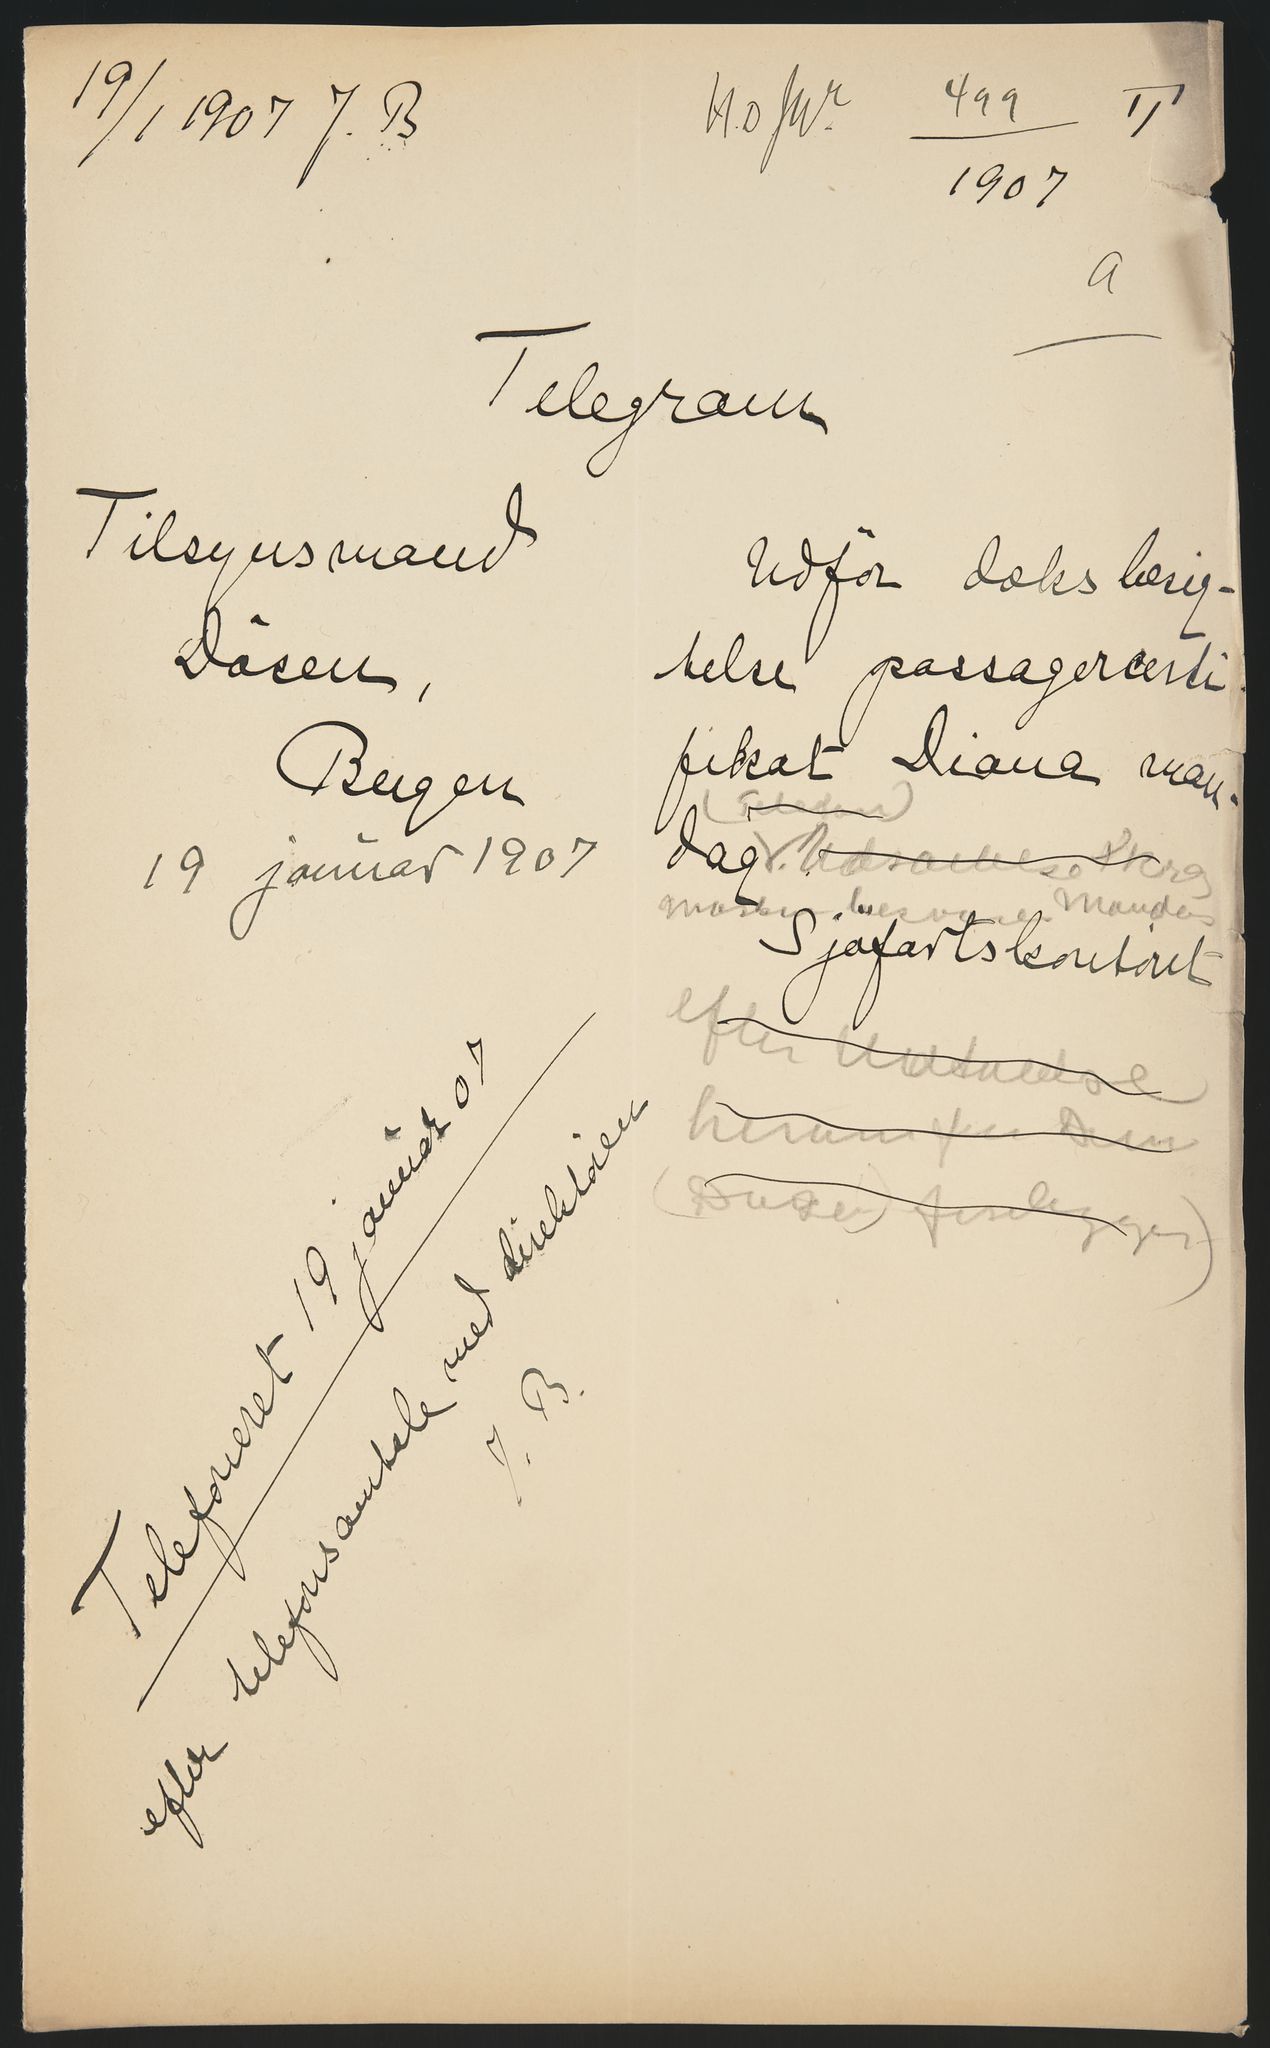 19/1 1907 J. B
499 II
1907
a
Telegram
Tilsynsmand
Døsen,
Bergen
19 januar 1907
Udfør doksbesig-
telse passagercerti-
fikat Diana man-
dag.
Sjøfartskontoret
efter Udtalelse
Telefoneret 19 januar 07
efter telefonsamtale med direktøren
J. B.